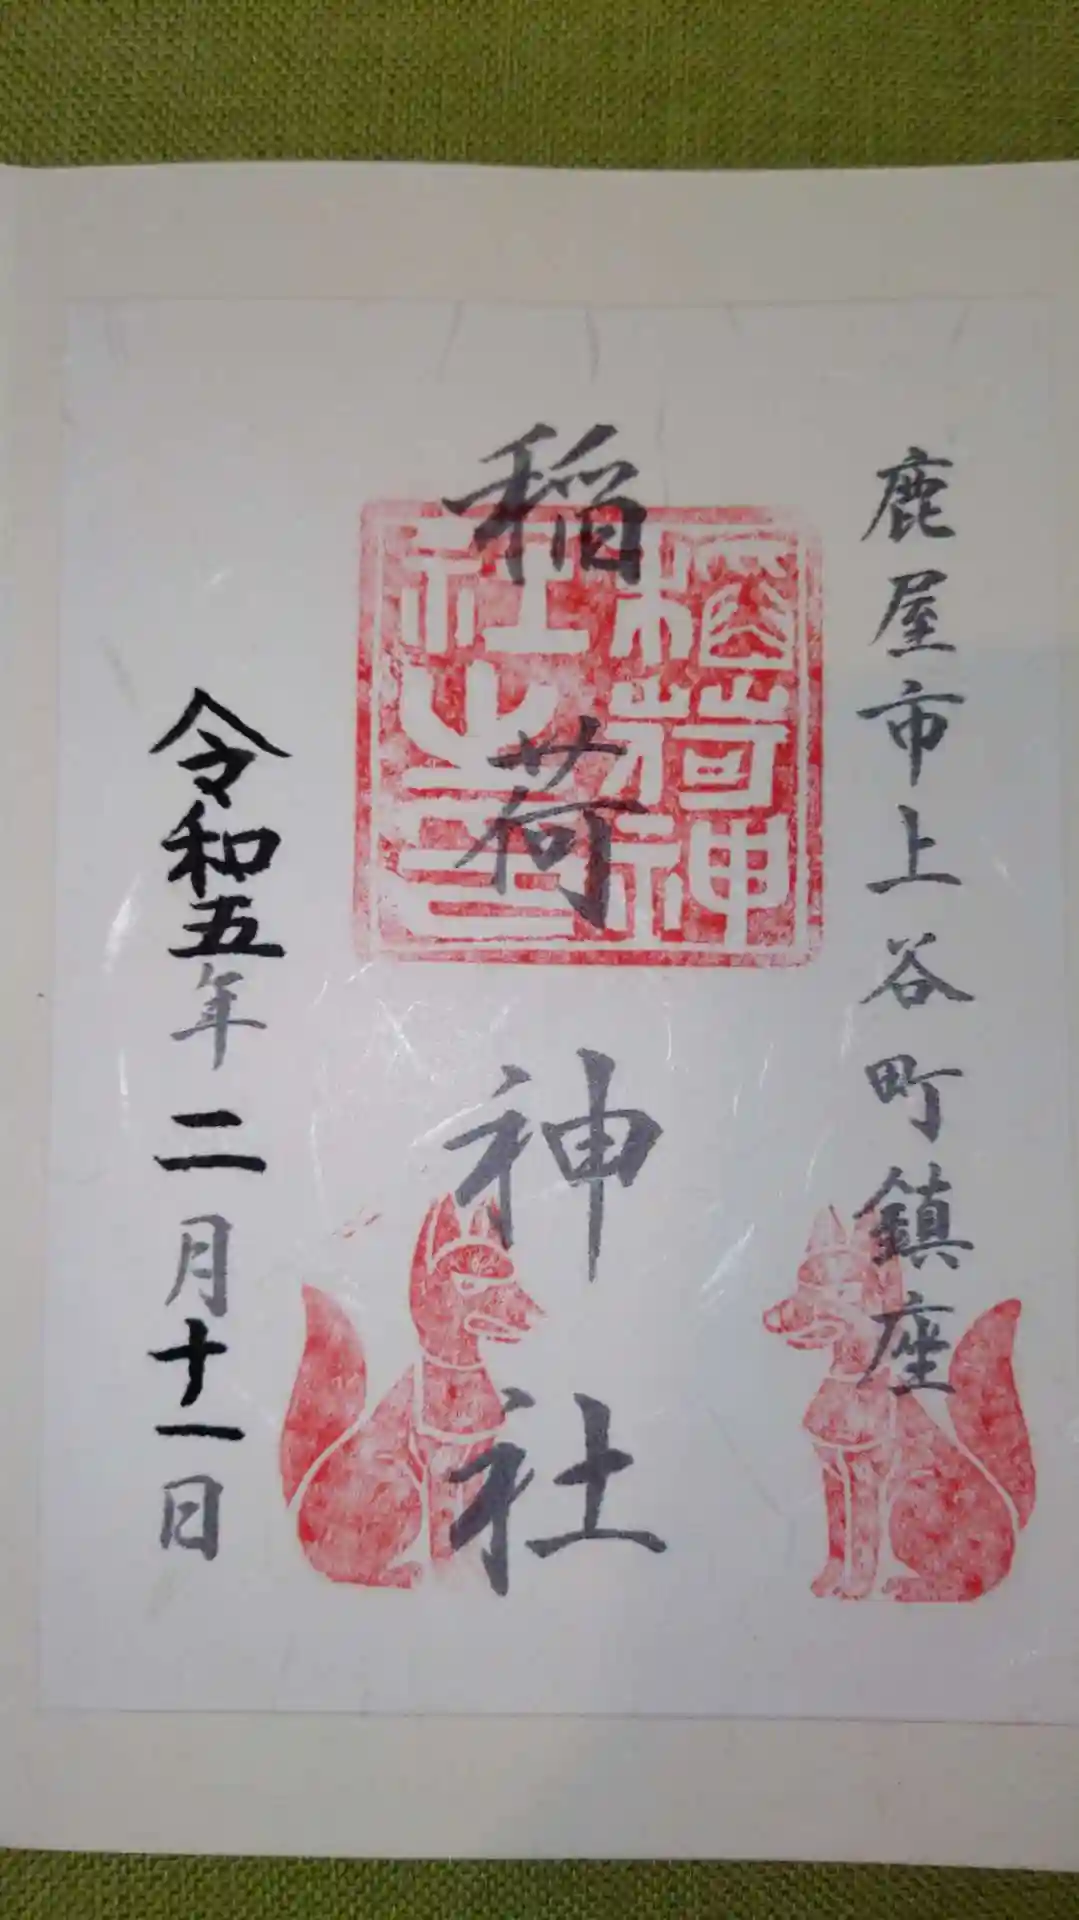 鹿屋市上谷町鎮座
稲荷神社
稲荷神
社之
令和五年二月十一日